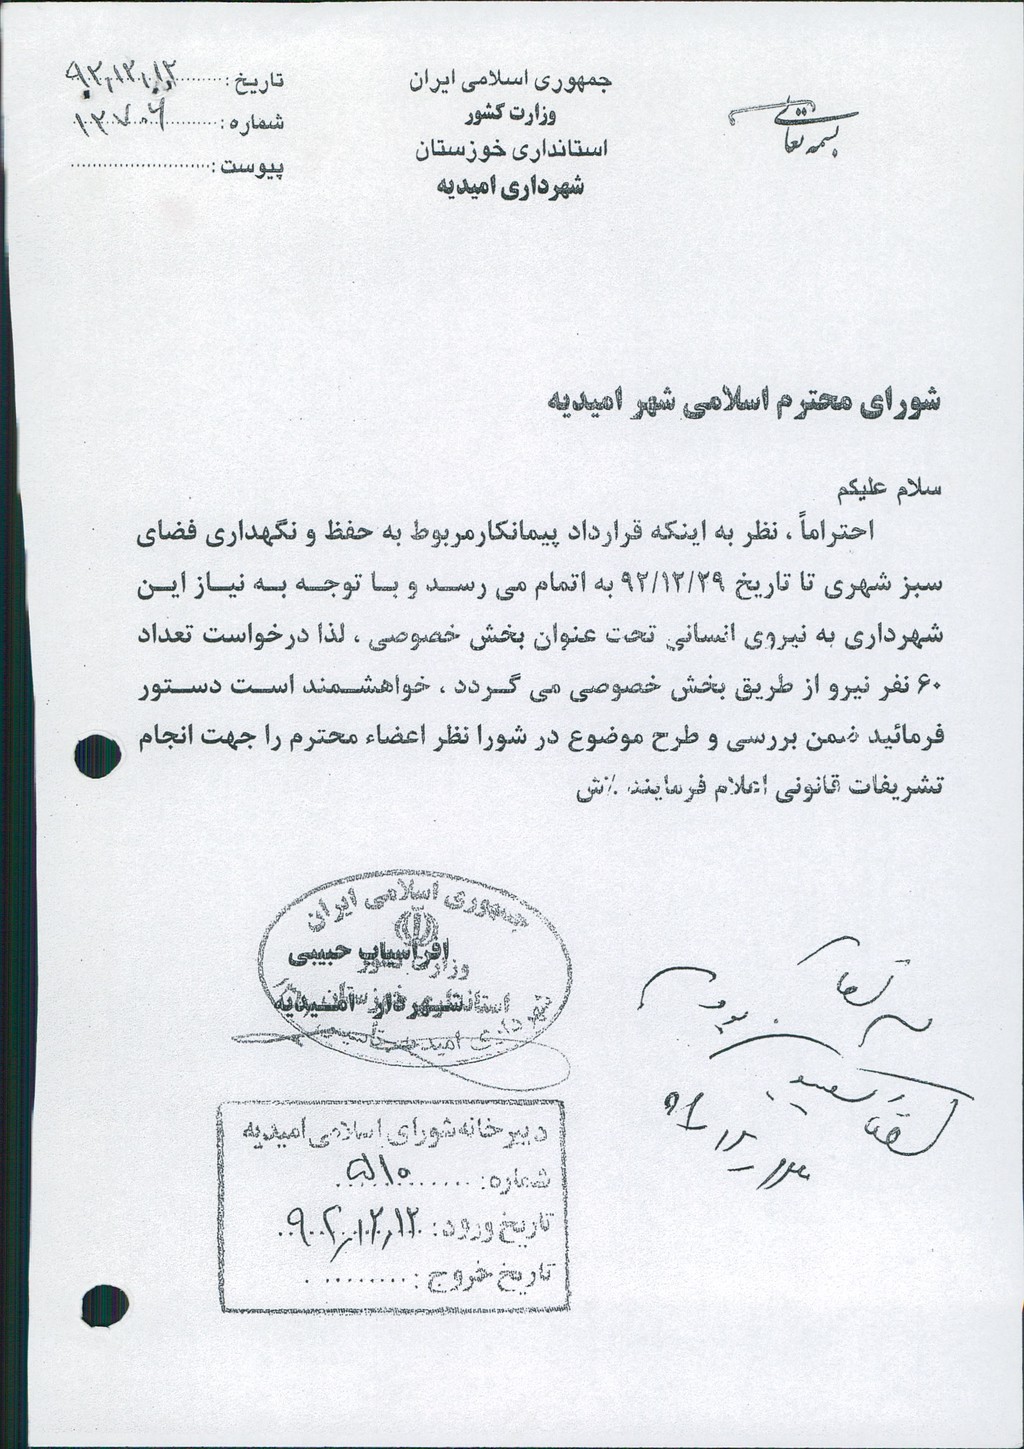 بسمه تعالی
جمهوری اسلامی ایران
وزارت کشور
استانداری خوزستان
شهرداری امیدیه
تاریخ : ۹۲/۱۲/۱۲
شماره : ۱۳۷۰۶
پیوست :
شورای محترم اسلامی شهر امیدیه
سلام علیکم
احتراماً ، نظر به اینکه قرارداد پیمانکارمربوط به حفظ و نگهداری فضای
سبز شهری تا تاریخ ۹۲/۱۲/۲۹ به اتمام می رسد و با توجه به نیاز این
شهرداری به نیروی انسانی تحت عنوان بخش خصوصی ، لذا درخواست تعداد
۶۰ نفر نیرو از طریق بخش خصوصی می گردد ، خواهشمند است دستور
فرمائید ضمن بررسی و طرح موضوع در شورا نظر اعضاء محترم را جهت انجام
تشریفات قانونی اعلام فرمایند ./ش
جمهوری اسلامی ایران
افراسیاب حبیبی
وزارت کشور
استانداری خوزستان
شهردار امیدیه
شهرداری امیدیه
دبیرخانه شورای اسلامی امیدیه
شماره: ۵۱۰
تاریخ ورود: ۹۲/۱۲/۱۲
تاریخ خروج :